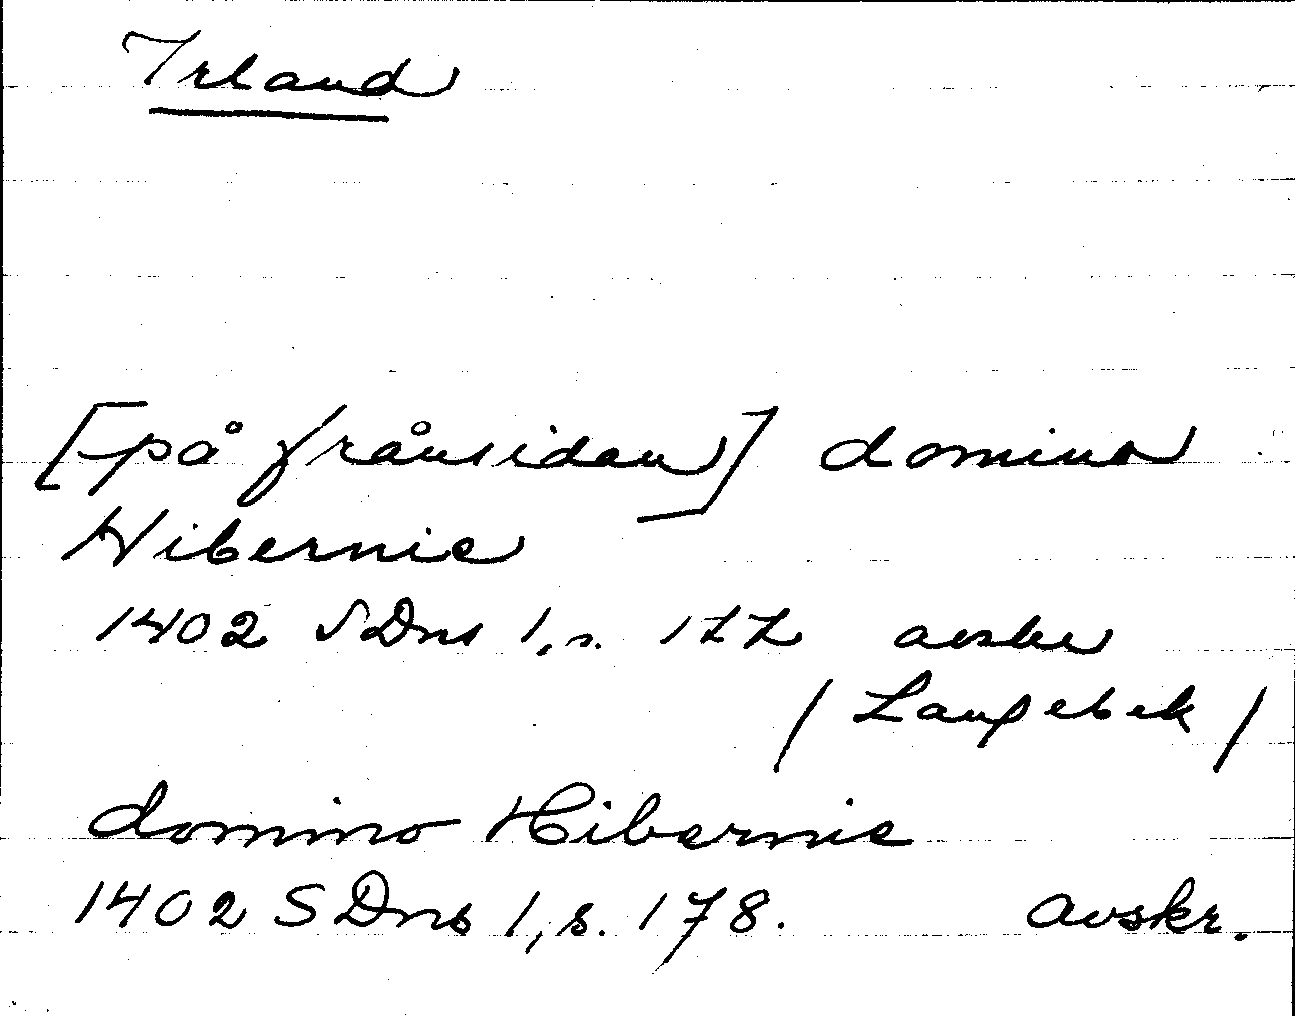 Irland
[på frånsidan] dominus
Hibernie
1402 SDns 1, s. 177 avskr
/ Langebek /
domino Hibernie
1402 SDns 1, s. 178. avskr.